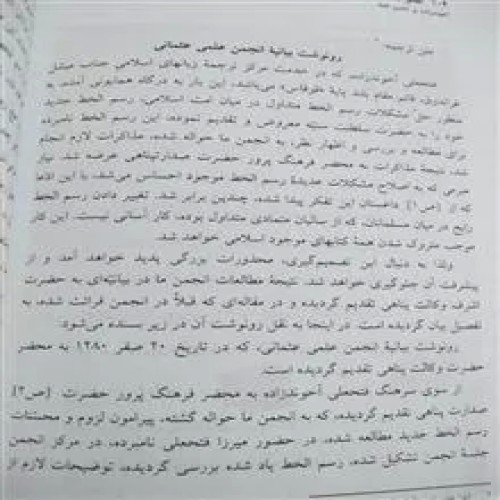 متن ترجمه:
رونوشت بیانیهٔ انجمن علمی عثمانی
فتحعلی آخوندزاده، که در خدمت مرکز ترجمهٔ زبانهای اسلامی جناب
قائم مقام بلند پایهٔ «قوقاس» می‌باشد، این بار به درگاه همایونی آمده، به
منظور حل مشکلات رسم الخط متداول در میان امت اسلامی، رسم الخط جدید
خود را به حضرت سلطنت معروض و تقدیم نموده. این رسم الخط نامبرده
برای مطالعه و بررسی و اظهار نظر، به انجمن ما حواله شده، مذاکرات لازم انجام
شد، نتیجهٔ مذاکرات به محضر فرهنگ پرور حضرت صدارتپناهی عرضه شد. نیاز
مبرمی که به اصلاح مشکلات عدیدهٔ رسم الخط موجود احساس می‌شد، با این
که از (ص۱) داغستان این تفکر پیدا شده، چندین برابر شد. تغییر دادن رسم الخط
رایج در میان مسلمانان، که از سالیان متمادی متداول بوده، کار آسانی نیست. این کار
موجب متروک شدن همهٔ کتابهای موجود اسلامی خواهد شد.
ولذا به دنبال این تصمیم‌گیری، محذورات بزرگی پدید خواهد آمد و از
پیشرفت آن جلوگیری خواهد شد. نتیجهٔ مطالعات انجمن ما در بیانیه‌ای به حضرت
اشرف وکالت پناهی تقدیم گردیده و در مقاله‌ای که قبلاً در انجمن قرائت شده، به
تفصیل بیان گردیده است. در اینجا به نقل رونوشت آن در زیر بسنده می‌شود:
رونوشت بیانیهٔ انجمن علمی عثمانی، که در تاریخ ۲۰ صفر ۱۲۸۰ به محضر
حضرت وکالت پناهی تقدیم گردیده است.
از سوی سرهنگ فتحعلی آخوندزاده به محضر فرهنگ پرور حضرت (ص۲)
صدارت پناهی تقدیم گردیده، که به انجمن ما حواله گشته. پیرامون لزوم و محسنات
رسم الخط جدید مطالعه شده، در حضور میرزا فتحعلی نامبرده، در مرکز انجمن
جلسهٔ انجمن تشکیل شده، رسم الخط یاد شده بررسی گردیده، توضیحات لازم از